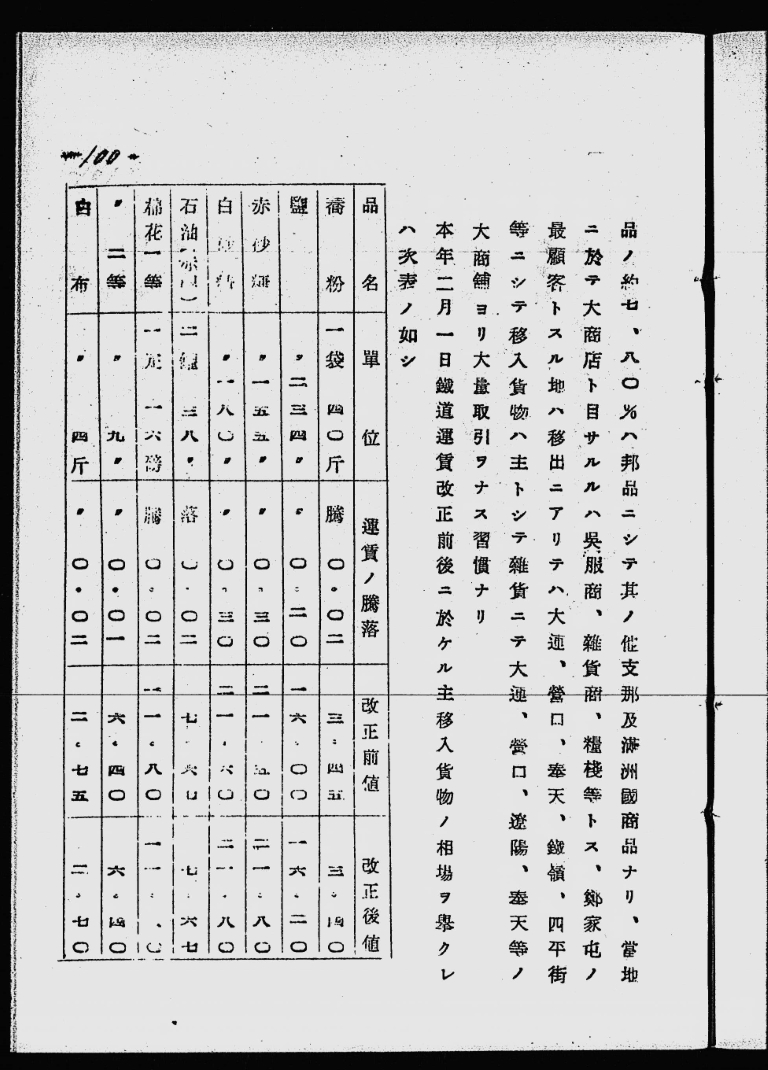 100
品ノ約七、八〇%ハ邦品ニシテ其ノ他支那及滿洲國商品ナリ、當地
ニ於テ大商店ト目サルルハ吳服商、雜貨商、糧棧等トス、鄭家屯ノ
最顧客トスル地ハ移出ニアリテハ大連、營口、奉天、鐵嶺、四平街
等ニシテ移入貨物ハ主トシテ雜貨ニテ大連、營口、遼陽、奉天等ノ
大商舖ヨリ大量取引ヲナス習慣ナリ
本年二月一日鐵道運賃改正前後ニ於ケル主移入貨物ノ相場ヲ擧クレ
ハ次表ノ如シ
品名 單位 運賃ノ騰落 改正前値 改正後値
粉 一袋 四〇斤 騰 〇.〇二 三.四五 三.四〇
鹽 〃 二三四〃 〃 〇.二〇 一六.〇〇 一六.二〇
赤砂糖 〃 一五五〃 〃 〇.三〇 二一.五〇 二一.八〇
白 〃 一八〇〃 〃 〇.三〇 二一.六〇 二一.八〇
石油 二 三八〃 落 〇.〇二 七.六七 七.六七
棉花一等 一 一六磅 騰 〇.〇二 一一.八〇 一一.
〃二等 〃 九〃 〃 〇.〇一 六.四〇 六.四〇
白布 〃 四斤 〃 〇.〇二 二.七五 二.七〇